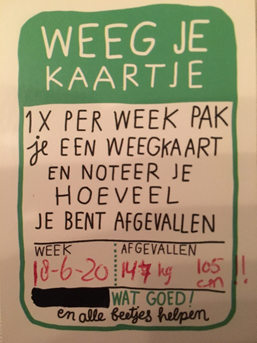 WEEG JE
KAARTJE
1X PER WEEK PAK
je EEN WEEGKAART
EN NOTEER JE
HOEVEEL
JE BENT AFGEVALLEN
WEEK AFGEVALLEN
18-6-20 147 kg 105 cm !!
WAT GOED!
en alle beetjes helpen